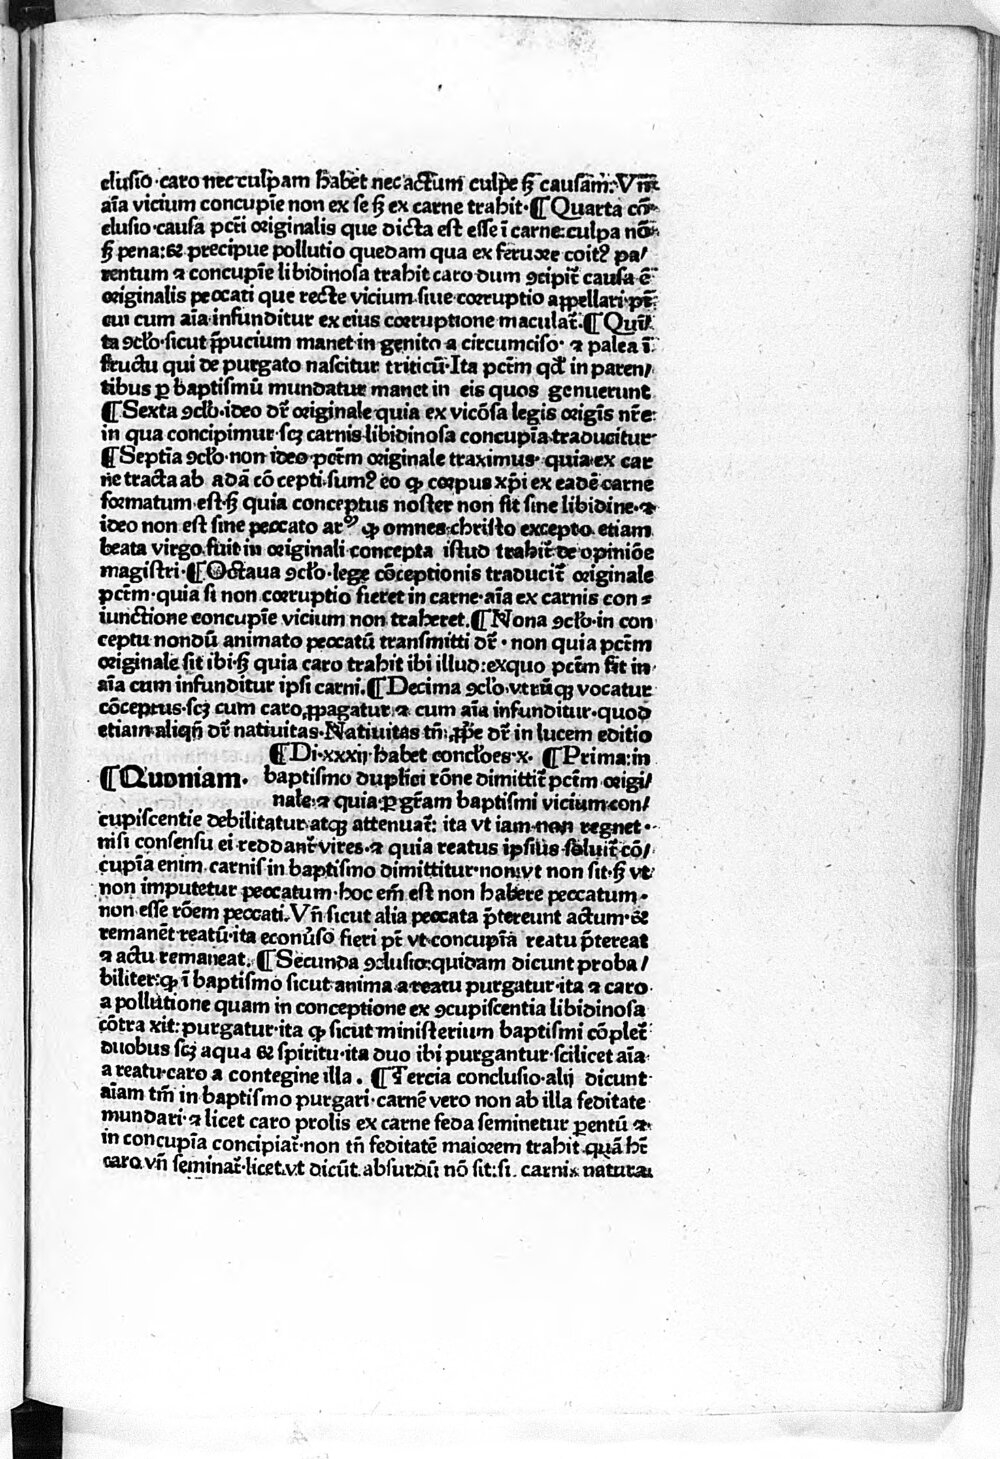 clusio·caro nec culpam habet nec actum culpe sꝫ causam: Vnͫ
aīa vicium concupīe non ex se sꝫ ex carne trahit·¶Quarta cō-
clusio·causa pctī originalis que dicta est esse ī carne:culpa nō
sꝫ pena:⁊ precipue pollutio quedam qua ex feruore coitꝰ pa/
rentum ⁊ concupīe libidinosa trahit caro dum ꝯcipit̄ causa ē
originalis peccati que recte vicium siue corruptio appellari pt̄:
cui cum aīa infunditur ex eius corruptione maculat̄.¶Quī
ta ꝯclo·sicut p̄pucium manet in genito a circumciso· ⁊ palea ī
fructu qui de purgato nascitur triticū·Ita pctm̄ qd̄ in paren/
tibus ꝑ baptismū mundatur manet in eis quos genuerunt
¶Sexta ꝯclo·ideo dr̄ originale quia ex vicōsa legis origīs nr̄e:
in qua concipimur·scꝫ carnis libidinosa concupīa traducitur
¶Septīa ꝯclo·non ideo pctm̄ originale traximus· quia ex car
ne tracta ab adā cōcepti sumꝰ eo ꝙ corpus xp̄i ex eadē carne
formatum est·sꝫ quia conceptus noster non fit sine libidine·⁊
ideo non est sine peccato ar ꝙ omnes christo excepto etiam
beata virgo fuit in originali concepta istud trahit̄ de opiniōe
magistri·¶Octaua ꝯclo·lege cōceptionis traducit̄ originale
pctm̄·quia si non corruptio fieret in carne·aīa ex carnis con⸗
iunctione concupīe vicium non traheret.¶Nona ꝯclo·in con
ceptu nondū animato peccatū transmitti dr̄· non quia pctm̄
originale sit ibi·sꝫ quia caro trahit ibi illud:exquo pctm̄ fit in
aīa cum infunditur ipsi carni.¶Decima ꝯclo·vtrūqꝫ vocatur
cōceptus·scꝫ cum caro ꝓpagatur ⁊ cum aīa infunditur·quod
etiam aliqn̄ dr̄ natiuitas·Natiuitas tn̄ ꝓpe dr̄ in lucem editio
¶Di·xxxij·habet concloes·x· ¶Prima:in
¶Quoniam· baptismo duplici rōne dimittit̄ pctm̄ origi/
nale:⁊ quia ꝑ gr̄am baptismi vicium con/
cupiscentie debilitatur atqꝫ attenuat̄: ita vt iam non regnet·
nisi consensu ei reddant̄ vires·⁊ quia reatus ipsius soluit̄ cō/
cupīa enim carnis in baptismo dimittitur non vt non sit·sꝫ vt
non imputetur peccatum·hoc em̄ est non habere peccatum·
non esse rōem peccati.Vn̄ sicut alia peccata p̄tereunt actum·⁊
remanēt reatū·ita econuso fieri pt̄ vt concupīa reatu p̄tereat
⁊ actu remaneat.¶Secunda ꝯclusio:quidam dicunt proba/
biliter:ꝙ ī baptismo sicut anima a reatu purgatur·ita ⁊ caro
a pollutione quam in conceptione ex ꝯcupiscentia libidinosa
cōtraxit:purgatur·ita ꝙ sicut ministerium baptismi cōplet̄
duobus scꝫ aqua ⁊ spiritu·ita duo ibi purgantur·scilicet aīa
a reatu·caro a contegine illa. ¶Tercia conclusio·alij dicunt
aīam tm̄ in baptismo purgari·carnē vero non ab illa feditate
mundari·⁊ licet caro prolis ex carne feda seminetur ꝑentū ⁊
in concupīa concipiat̄·non tn̄ feditatē maiorem trahit quā hꝫ
caro vn̄ seminat̄·licet vt dicūt absurdū nō sit:si carnis natura